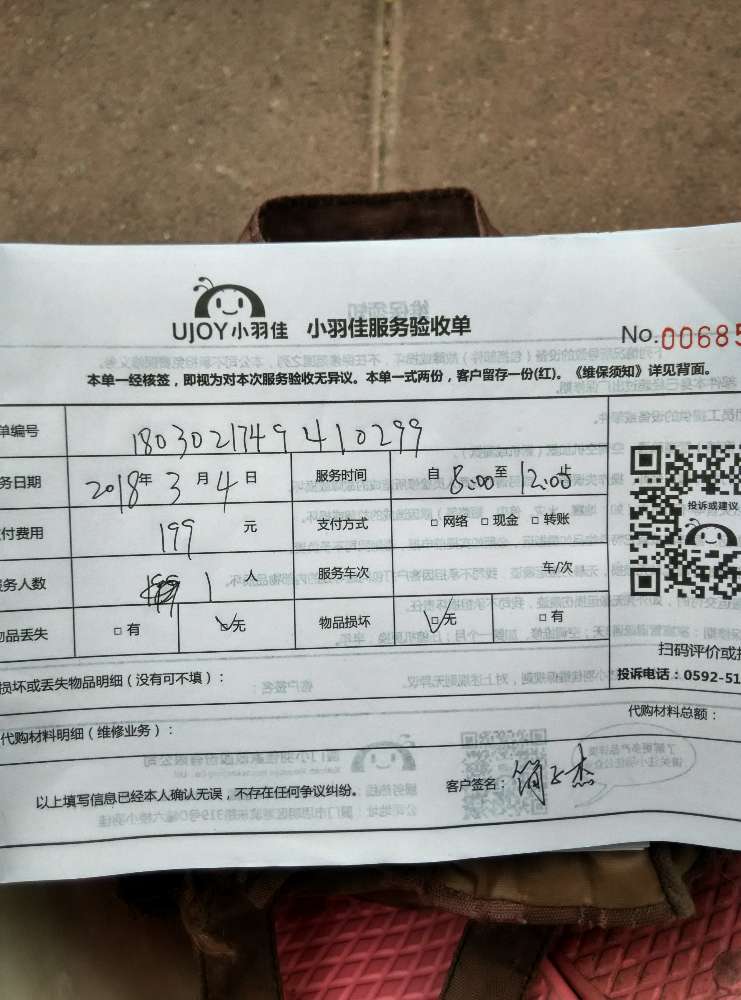 UJOY小羽佳 小羽佳服务验收单
No.00685
本单一经核签，即视为对本次服务验收无异议。本单一式两份，客户留存一份(红)。《维保须知》详见背面。
单编号 180302174941 0299
务日期 2018年3月4日 服务时间 自8:00至12:05止
付费用 199元 支付方式 □网络 □现金 □转账
务人数 1人 服务车次 车/次
品丢失 □有 □无 物品损坏 □无 □有
投诉或建议
扫码评价或
投诉电话：0592-51
损坏或丢失物品明细（没有可不填）：
代购材料总额：
代购材料明细（维修业务）：
以上填写信息已经本人确认无误，不存在任何争议纠纷。
客户签名：